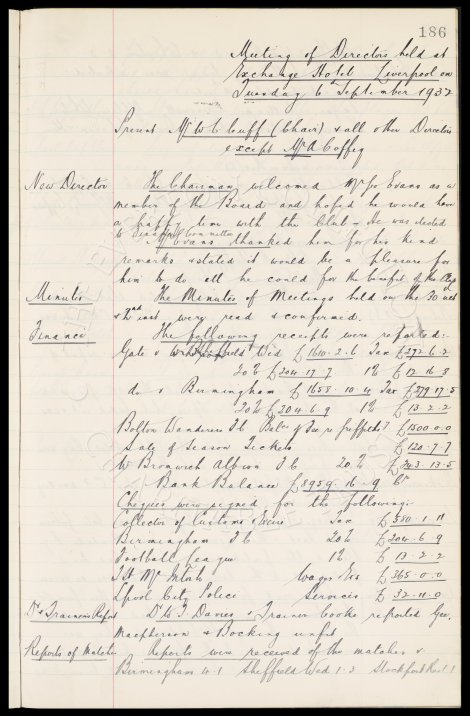 186
Meeting of Directors held at
Exchange Hotel Liverpool on
Tuesday 6th September 1932
Present Mr W C Cuff (Chair) & all other Directors
except Mr A Coffey
New Director The Chairman welcomed Mr Evans as a
member of the Board and hoped he would have
a happy time with the Club - He was elected
to Committee
Mr Evans thanked him for his kind
remarks & stated it would be a pleasure for
him to do all he could for the benefit of the Club
Minutes The Minutes of Meetings held on the 30 ult
& 2nd inst were read & confirmed.
Finance The following receipts were reported:-
Gate v Sheffield Wed £1610-2-6 Tax £272-6-2
20% £204-17-7 1% £12-16-3
do v Birmingham £1658-10-4 Tax £279-17-5
20% £204-6-9 1% £13-2-2
Bolton Wanderers F C Balce of fee re £1500-0-0
Sale of Season Tickets £120-7-7
W Bromwich Albion F C 20% £243-13-5
Bank Balance £8959-16-9 Cr
Cheques were signed for the following:-
Collector of Customs & Excise Tax £580-1-11
Birmingham F C 20% £204-6-9
Football League 1% £13-2-2
T H McIntosh Wages Etc £365-0-0
Lpool City Police Services £32-11-0
Dr & Trainer's Report Dr Davies & Trainer Cooke reported Geo.
Macpherson & Bocking unfit
Reports of Matches Reports were received of the matches v
Birmingham 4-1 Sheffield Wed 1-3 Stockport Res 1